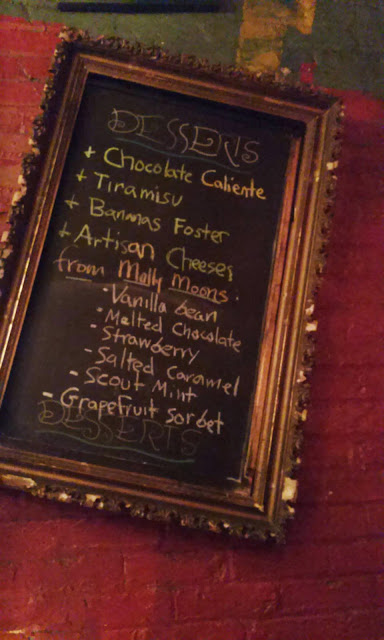 DESSERTS
+ Chocolate Caliente
+ Tiramisu
+ Bananas Foster
+ Artisan Cheeses
from Molly Moons:
- Vanilla bean
- Malted Chocolate
- Strawberry
- Salted Caramel
- Scout Mint
- Grapefruit Sorbet
DESSERTS